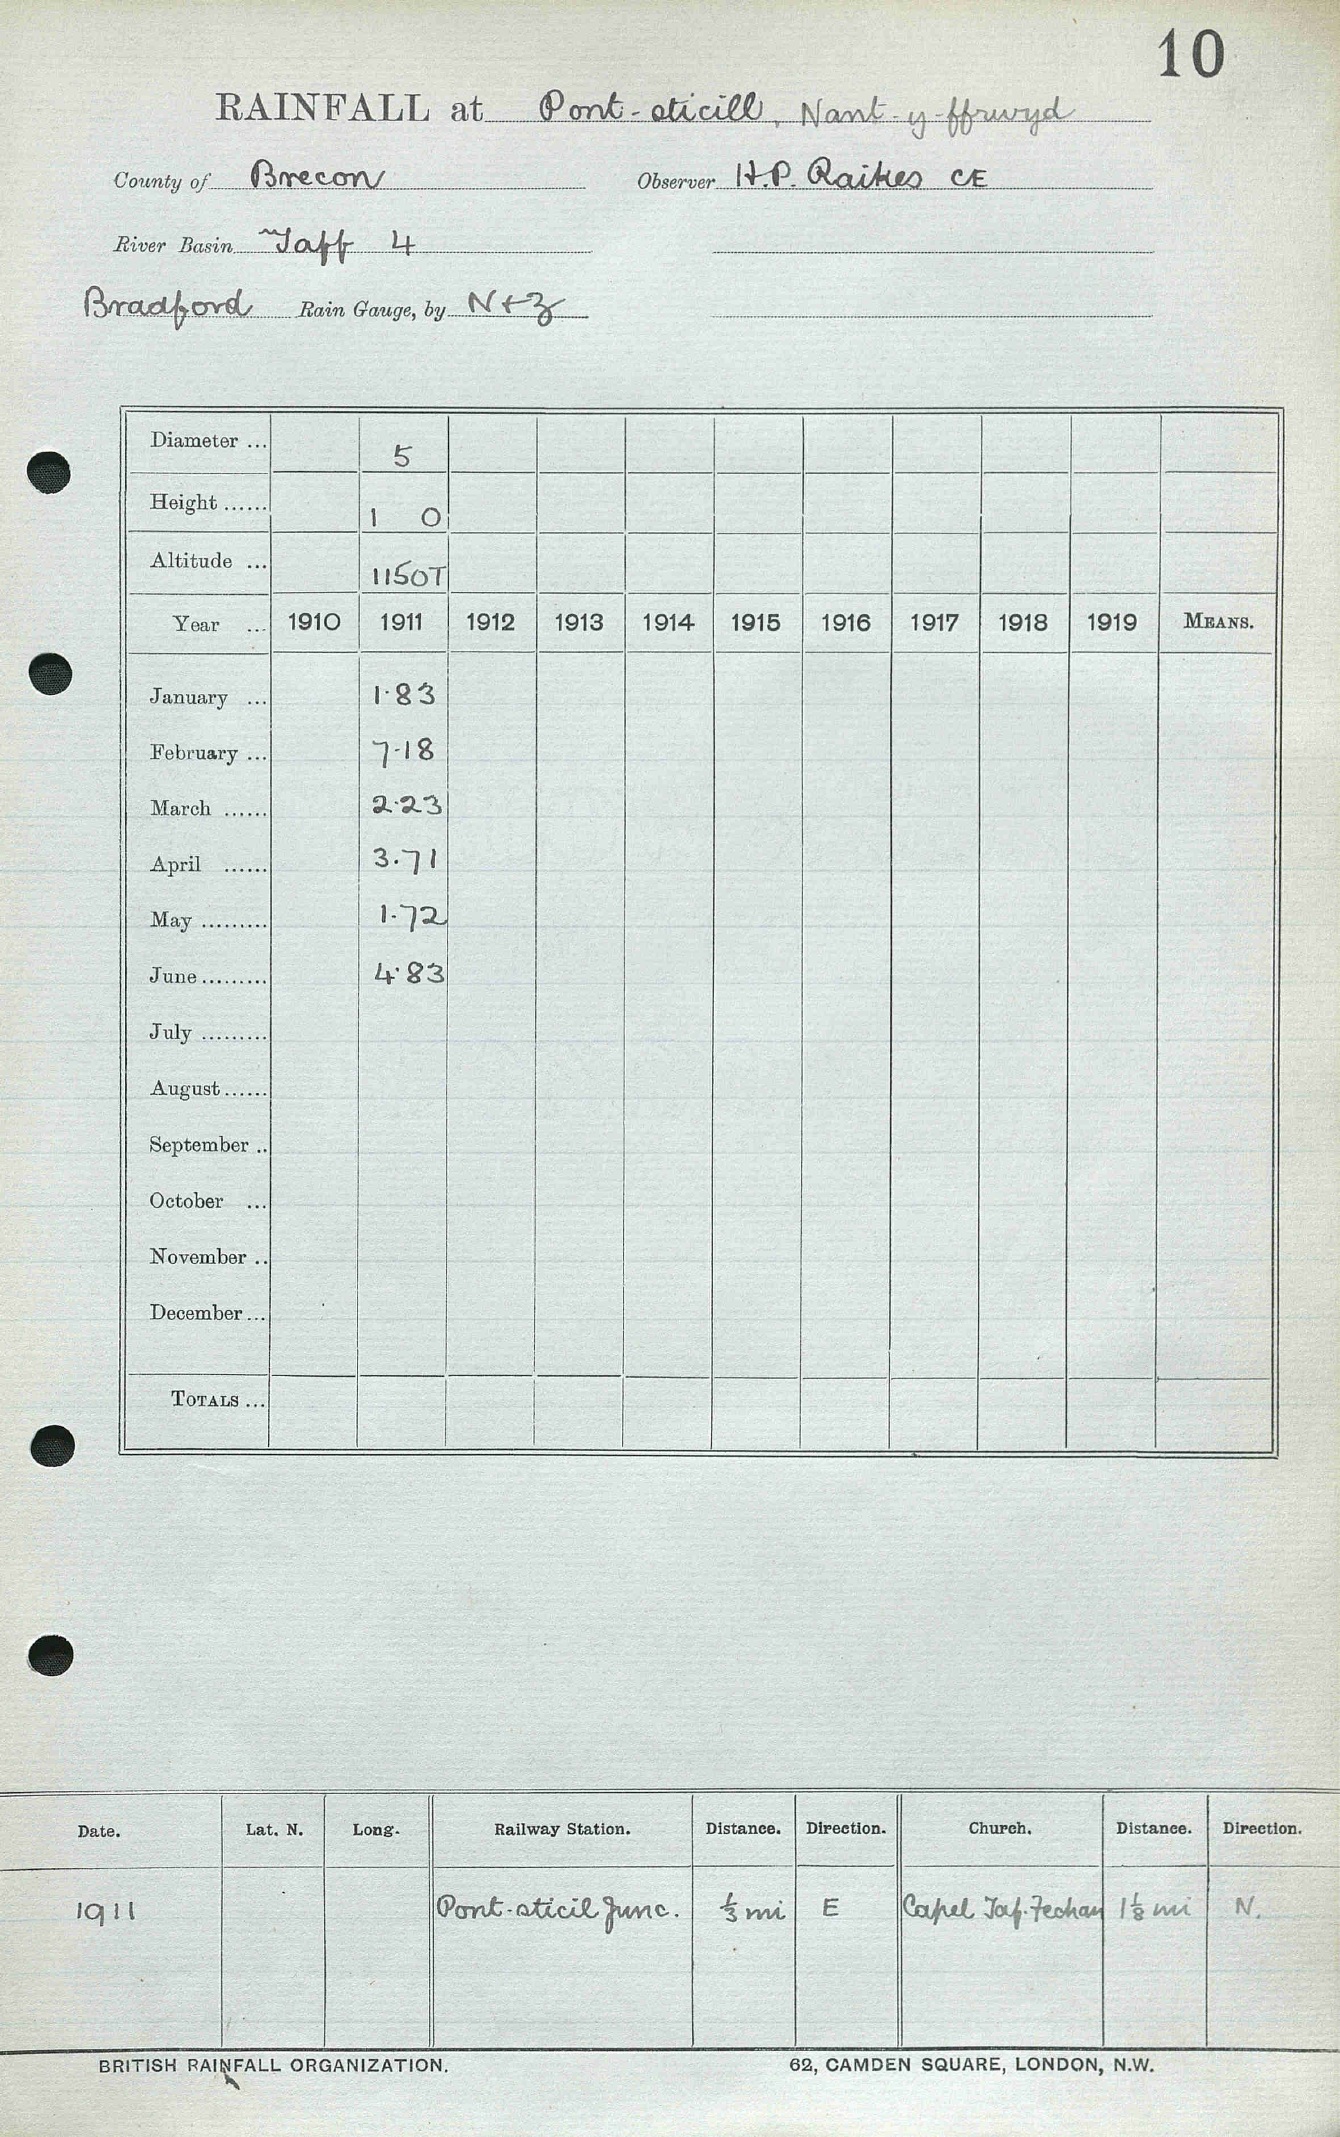 10
RAINFALL at Pont-sticill, Nant-y-ffrwyd
County of Brecon Observer H.P. Raikes CE
River Basin Taff 4
Bradford Rain Gauge, by N+Z
Diameter ... 5
Height ...... 1 0
Altitude ... 1150T
Year ... 1910 1911 1912 1913 1914 1915 1916 1917 1918 1919 MEANS.
January ... 1.83
February ... 7.18
March ...... 2.23
April ...... 3.71
May ......... 1.72
June ......... 4.83
July .........
August ......
September ..
October ...
November ..
December ...
TOTALS ...
Date. Lat. N. Long. Railway Station. Distance. Direction. Church. Distance. Direction.
1911 Pont-sticil Junc. ⅓ mi E Capel Taf-Fechan 1⅛ mi N.
BRITISH RAINFALL ORGANIZATION. 62, CAMDEN SQUARE, LONDON, N.W.